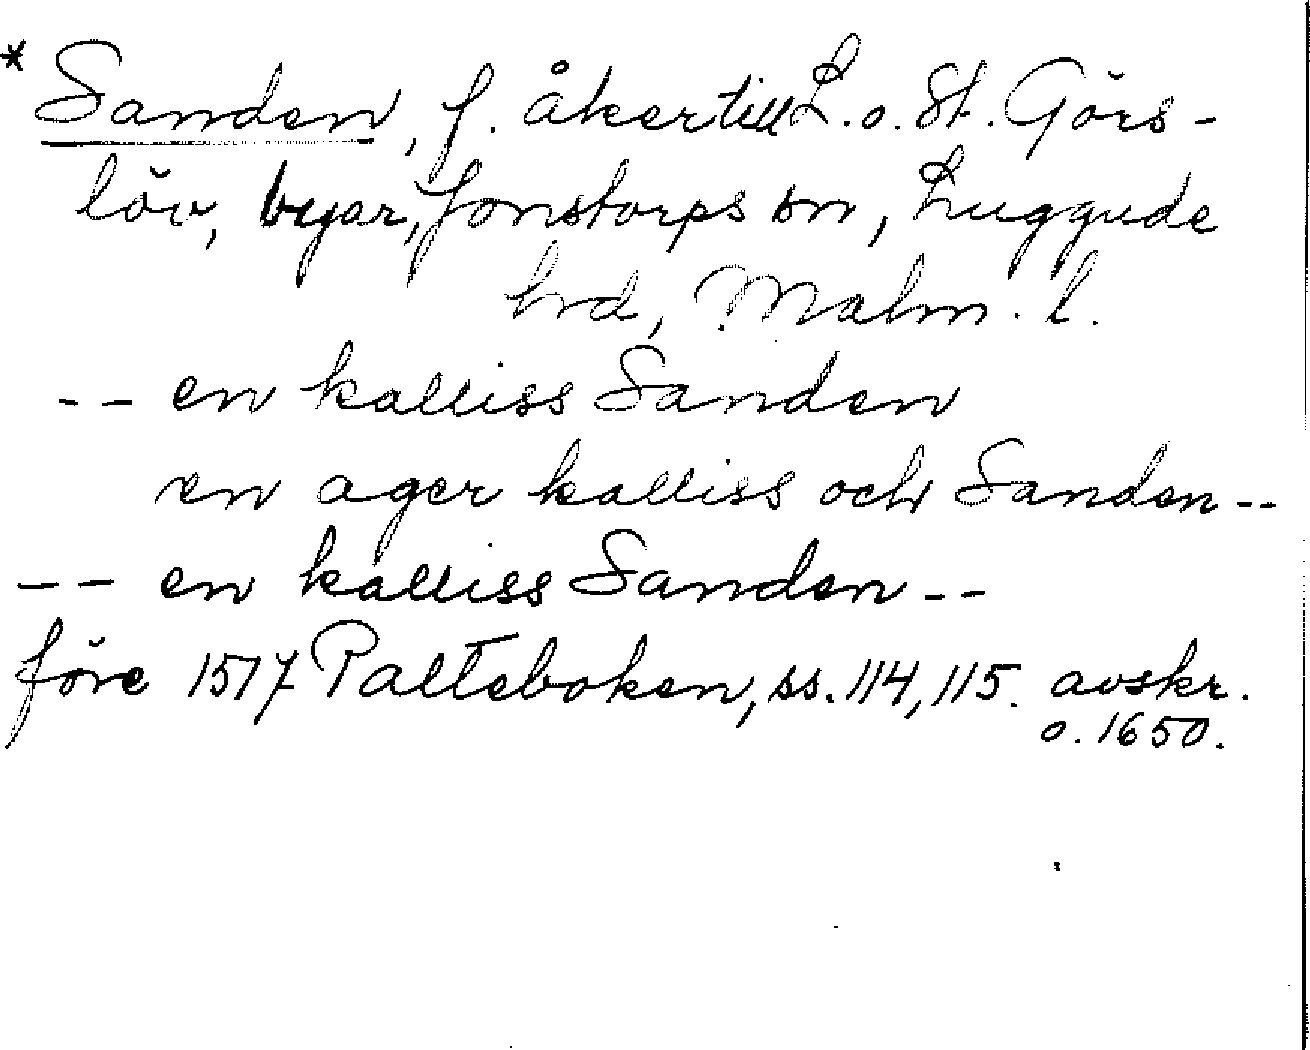 * Sanden, f. åker till L. o. St. Görs-
löv, byar, Jonstorps sn, Luggude
hrd, Malm. l.
-- en kalliss Sanden
en ager kalliss och Sanden--
-- en kalliss Sanden--
före 1517 Palteboken, ss. 114, 115. avskr.
o. 1650.